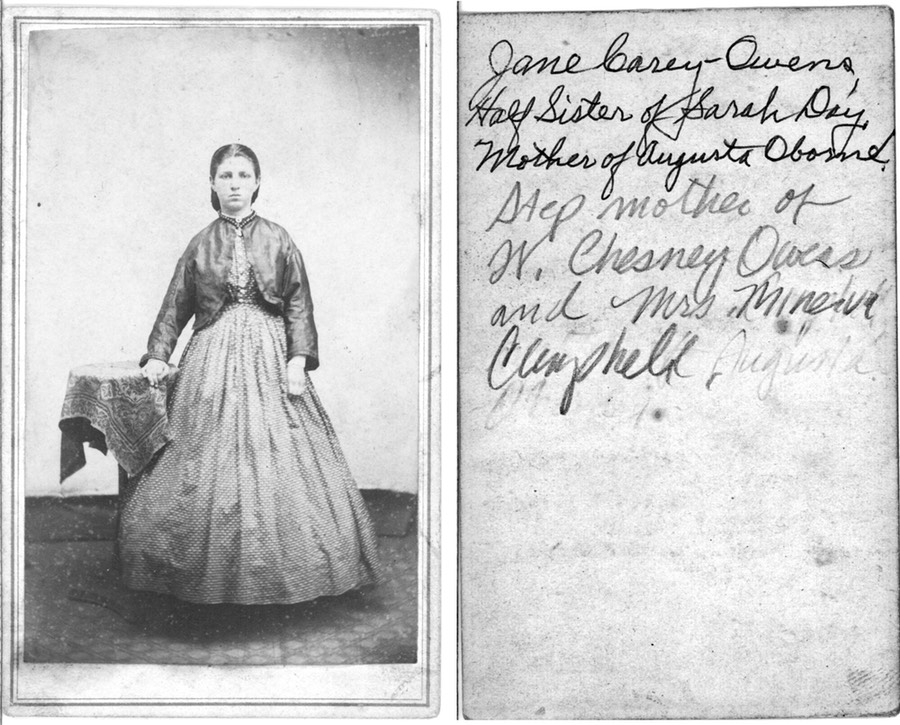 Jane Carey-Owens,
Half Sister of Sarah Day,
Mother of Augusta Oborne.
Step mother of
W. Chesney Owens
and Mrs. Minerva
Campbell Augusta